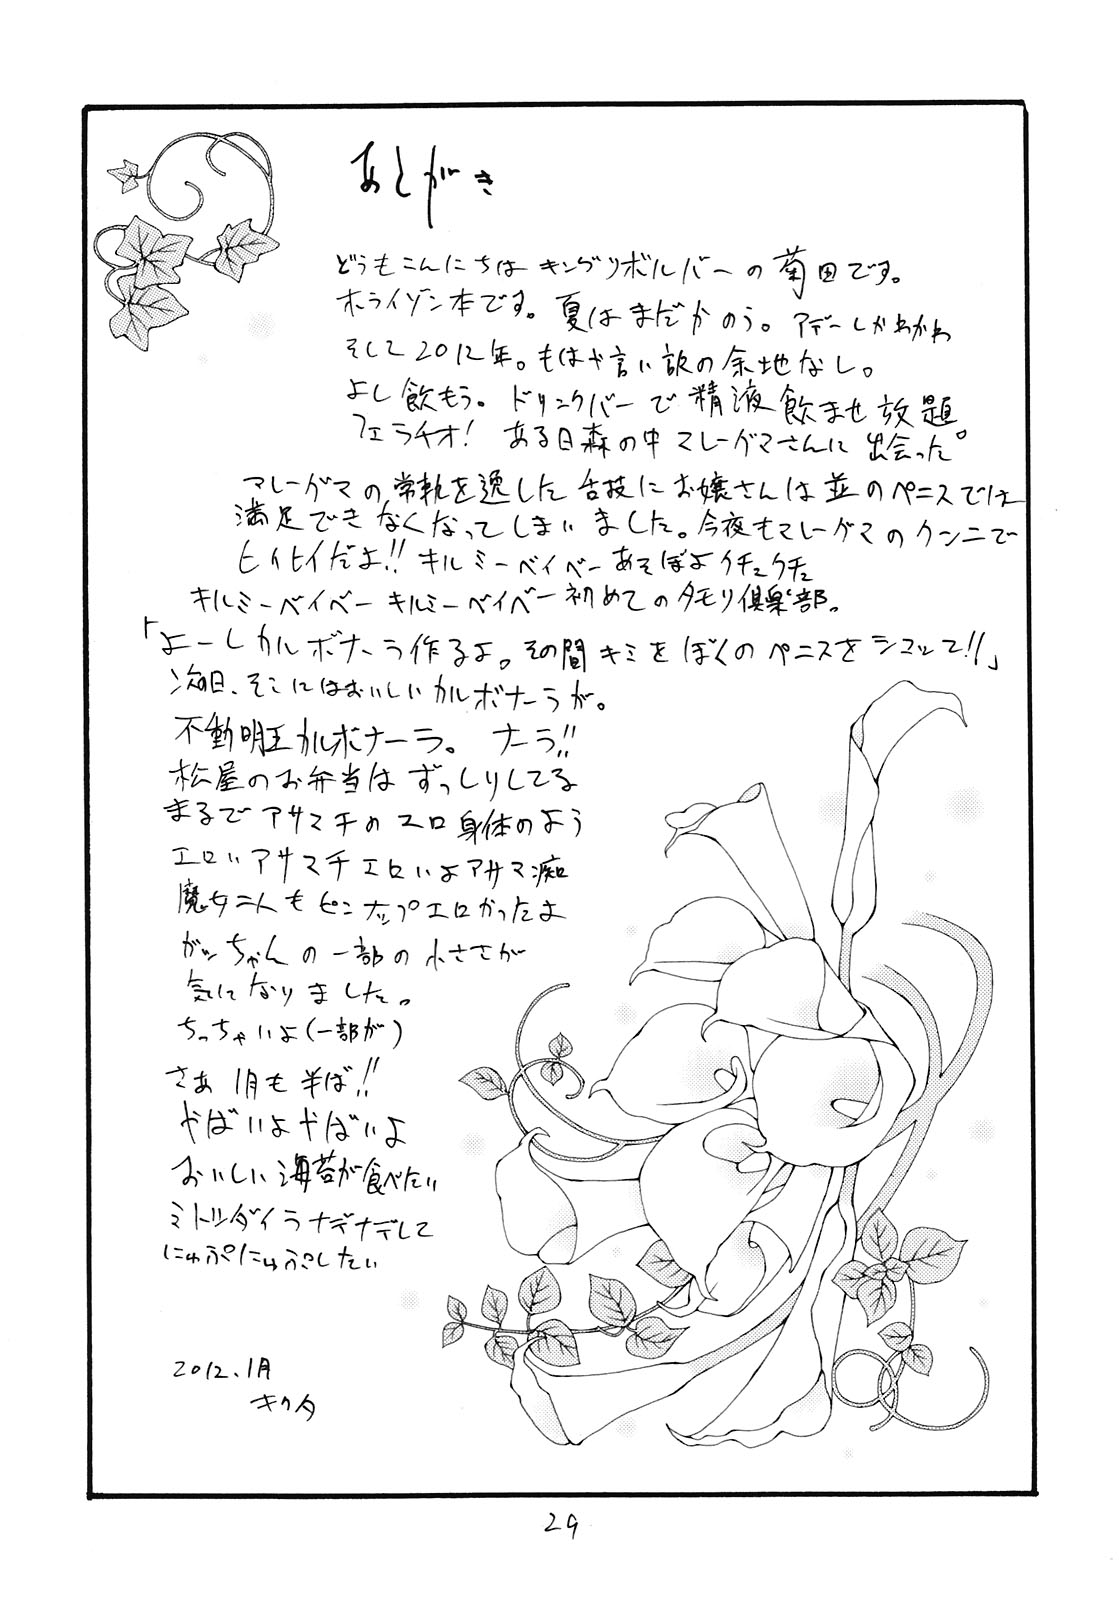 あとがき
どうもこんにちは キングリボルバーの菊田です。
ホライゾン本です。夏はまだかのう。アデーレかわかわ
そして2012年。もはや言い訳の余地なし。
よし飲もう。ドリンクバーで精液飲ませ放題
フェラチオ! ある日森の中マレーグマさんに出会った。
マレーグマの常軌を逸した舌技にお嬢さんは並のペニスでは
満足できなくなってしまいました。今夜もマレーグマのクンニで
ヒィヒィだよ!! キルミーベイベーあそぼよクチュクチュ
キルミーベイベーキルミーベイベー初めてのタモリ倶楽部。
「よーしカルボナーラ作るよ。その間キミをぼくのペニスをシコッて!!」
次の日、そこにはおいしいカルボナーラが。
不動明王カルボナーラ。 ナーラ!!
松屋のお弁当はずっしりしてる
まるでアサマチのエロ身体のよう
エロいアサマチエロいよアサマ痴
魔女二人もピンナップエロかったよ
ガッちゃんの一部の小ささが
気になりました。
ちっちゃいよ(一部が)
さあ 1月も半ば!!
やばいよやばいよ
おいしい海苔が食べたい
ミトツダイラナデナデして
にゅぷにゅぷしたい
2012.1月
キクタ
29